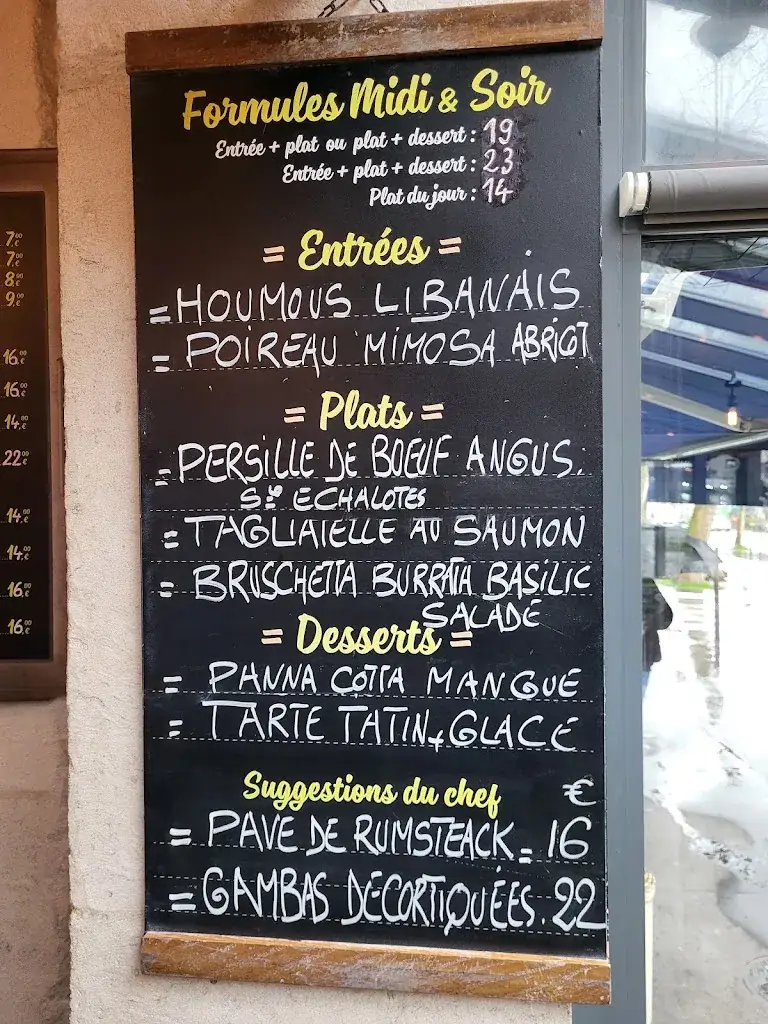 Formules Midi & Soir
Entrée + plat ou plat + dessert : 19
Entrée + plat + dessert : 23
Plat du jour : 14
= Entrées =
= HOUMOUS LIBANAIS
= POIREAU MIMOSA ABRICOT
= Plats =
= PERSILLE DE BOEUF ANGUS.
ECHALOTES
= TAGLIATELLE AU SAUMON
= BRUSCHETTA BURRATA BASILIC
SALADE
= Desserts =
= PANNA COTTA MANGUE
= TARTE TATIN + GLACE
Suggestions du chef €
= PAVE DE RUMSTEACK = 16
= GAMBAS DECORTIQUÉES. 22
7,00 €
7,00 €
8,00 €
9,00 €
16,00 €
16,00 €
14,00 €
22,00 €
14,00 €
14,00 €
16,00 €
16,00 €